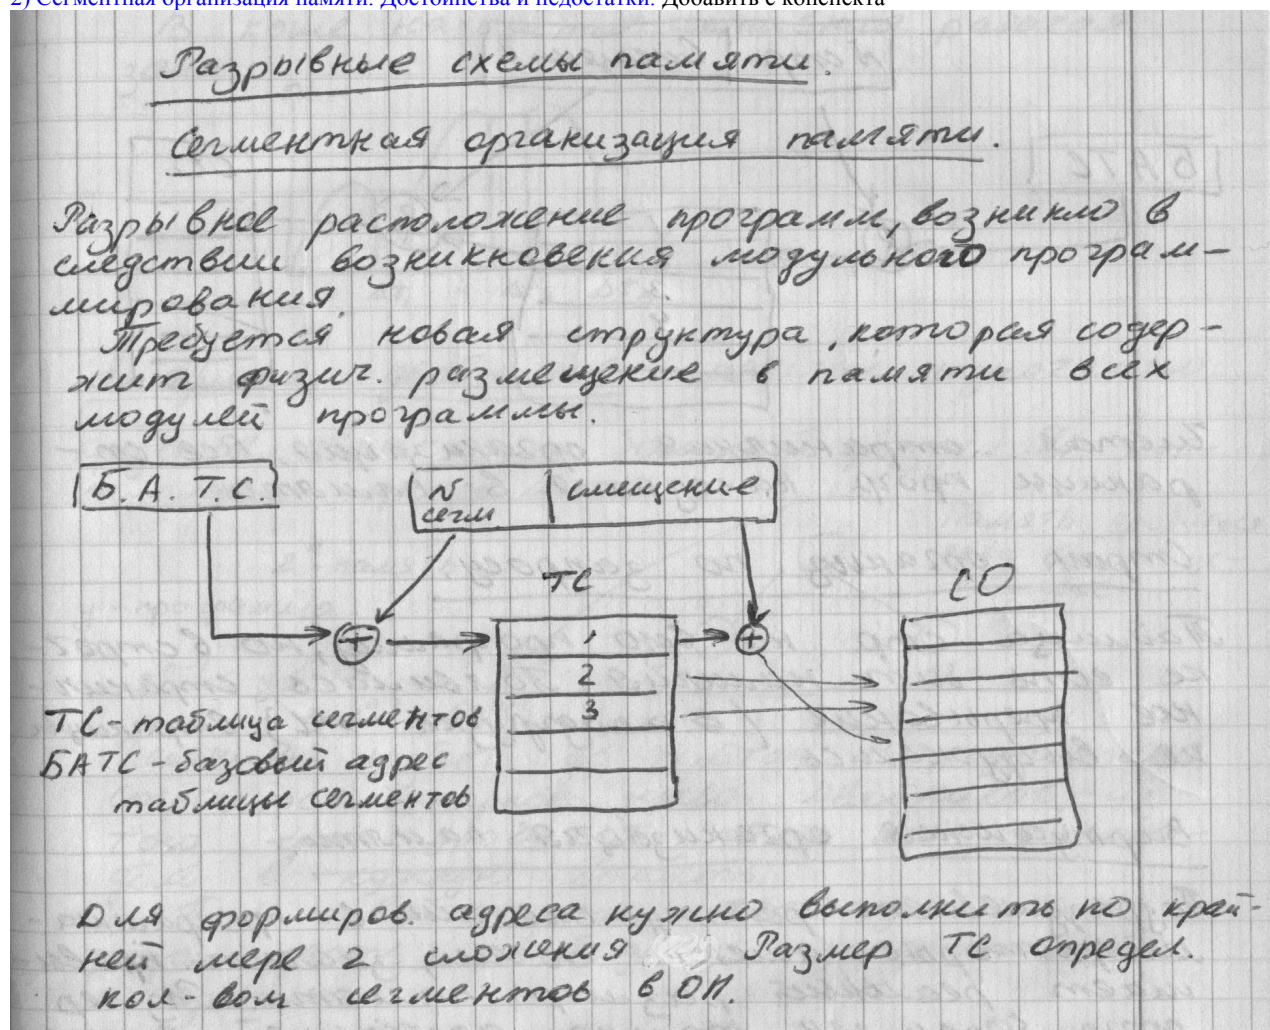 2) Сегментная организация памяти. Достоинства и недостатки. Добавить с конспекта
Разрывные схемы памяти.
Сегментная организация памяти.
Разрывное расположение программ, возникло в
следствии возникновения модульного програм-
мирования.
Требуется новая структура, которая содер-
жит физич. размещение в памяти всех
модулей программы.
Б. А. Т. С.
N смещение
сегм
ТС
СО
1
2
3
ТС - таблица сегментов
БАТС - базовый адрес
таблицы сегментов
Для формиров. адреса нужно выполнить по край-
ней мере 2 сложения Размер ТС определ.
кол-вом сегментов в ОП.